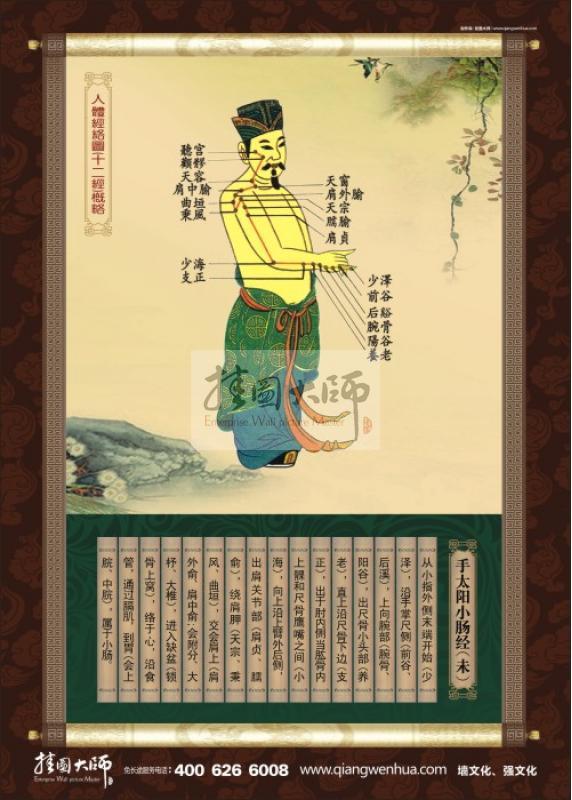 挂图大师 | www.qiangwenhua.com
人體經絡圖(十二經概略)
聽宮
觀髎
天容
肩中腧
曲垣
秉風
天窗
肩外腧
天宗
臑腧
肩貞
少海
支正
少澤
前谷
后谿
腕骨
陽谷
養老
挂图大师
Enterprise Wall picture Master
手太阳小肠经(未)
从小指外侧末端开始(少
泽),沿手掌尺侧(前谷、
后溪),上向腕部(腕骨、
阳谷),出尺骨小头部(养
老),直上沿尺骨下边(支
正),出于肘内侧当肱骨内
上髁和尺骨鹰嘴之间(小
海),向上沿上臂外后侧,
出肩关节部(肩贞、臑
俞),绕肩胛(天宗、秉
风、曲垣),交会肩上(肩
外俞、肩中俞;会附分、大
杼、大椎),进入缺盆(锁
骨上窝),络于心,沿食
管,通过膈肌,到胃(会上
脘、中脘),属于小肠。
挂图大师
Enterprise Wall picture Master
免长途服务电话:400 626 6008 www.qiangwenhua.com 墙文化、强文化